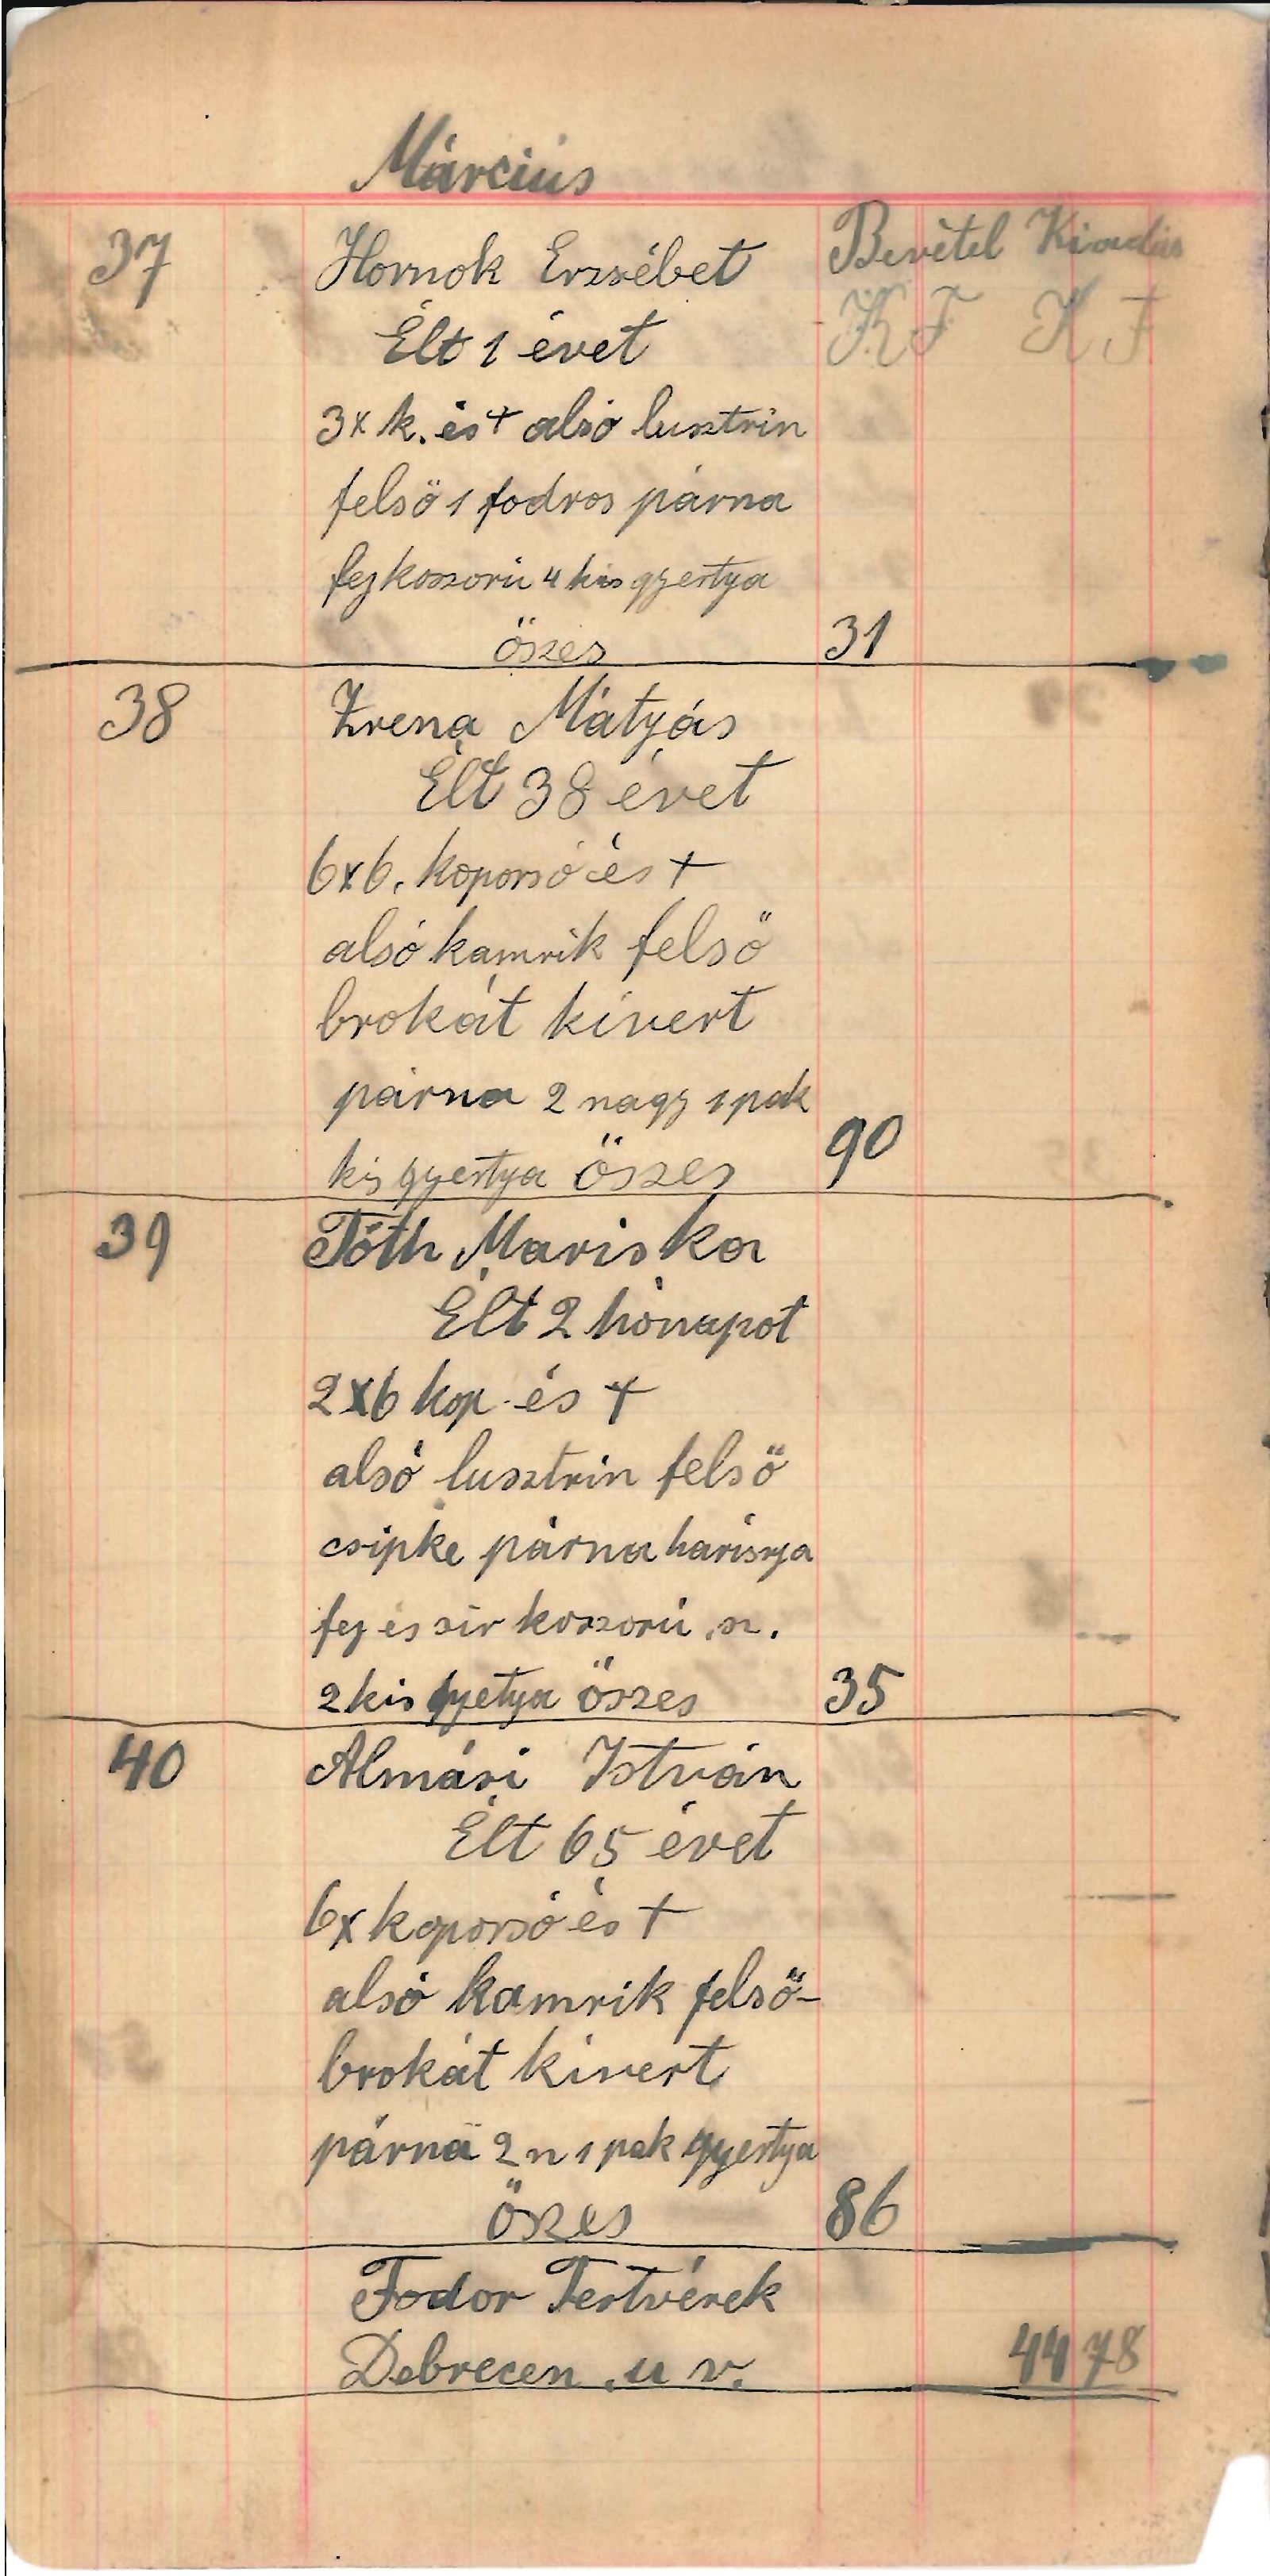 Március
37 Hornok Erzsébet Bevétel Kiadás
Élt 1 évet K F K F
3x k. és + alsó lusztrin
felső 1 fodros párna
fejkoszorú 4 kis gyertya
öszes 31
38 Zrena Mátyás
Élt 38 évet
6x6. koporsó és +
alsó kamrik felső
brokát kivert
párna 2 nagy 1 pak
kis gyertya öszes 90
39 Tóth Mariska
Élt 2 hónapot
2x6 kop. és +
alsó lusztrin felső
csipke párna harisnya
fej és sir koszorú sz.
2 kis gyetya öszes 35
40 Almási István
Élt 65 évet
6x koporsó és +
alsó kamrik felső-
brokát kivert
párna 2 n 1 pak gyertya
öszes 86
Fodor Testvérek
Debrecen u v. 44 78